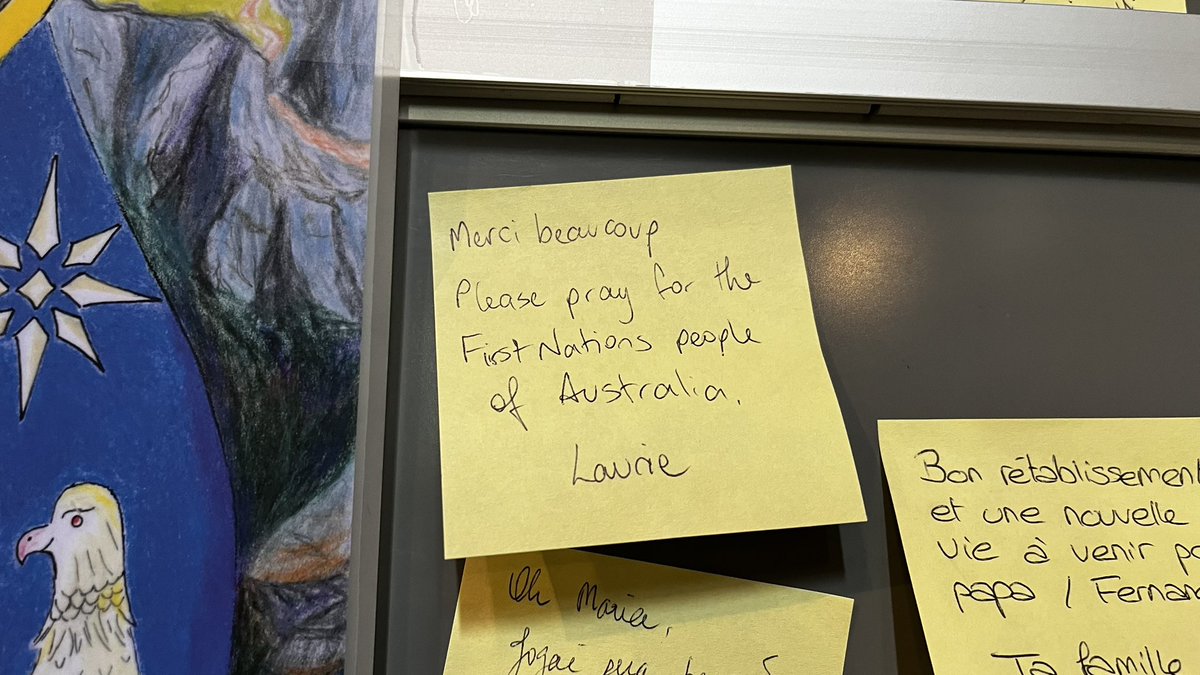 Merci beaucoup
Please pray for the
First Nations people
of Australia.
Laurie
Oh Maria,
Bon rétablissement
et une nouvelle
vie à venir
papa / Fernand
Ta famille